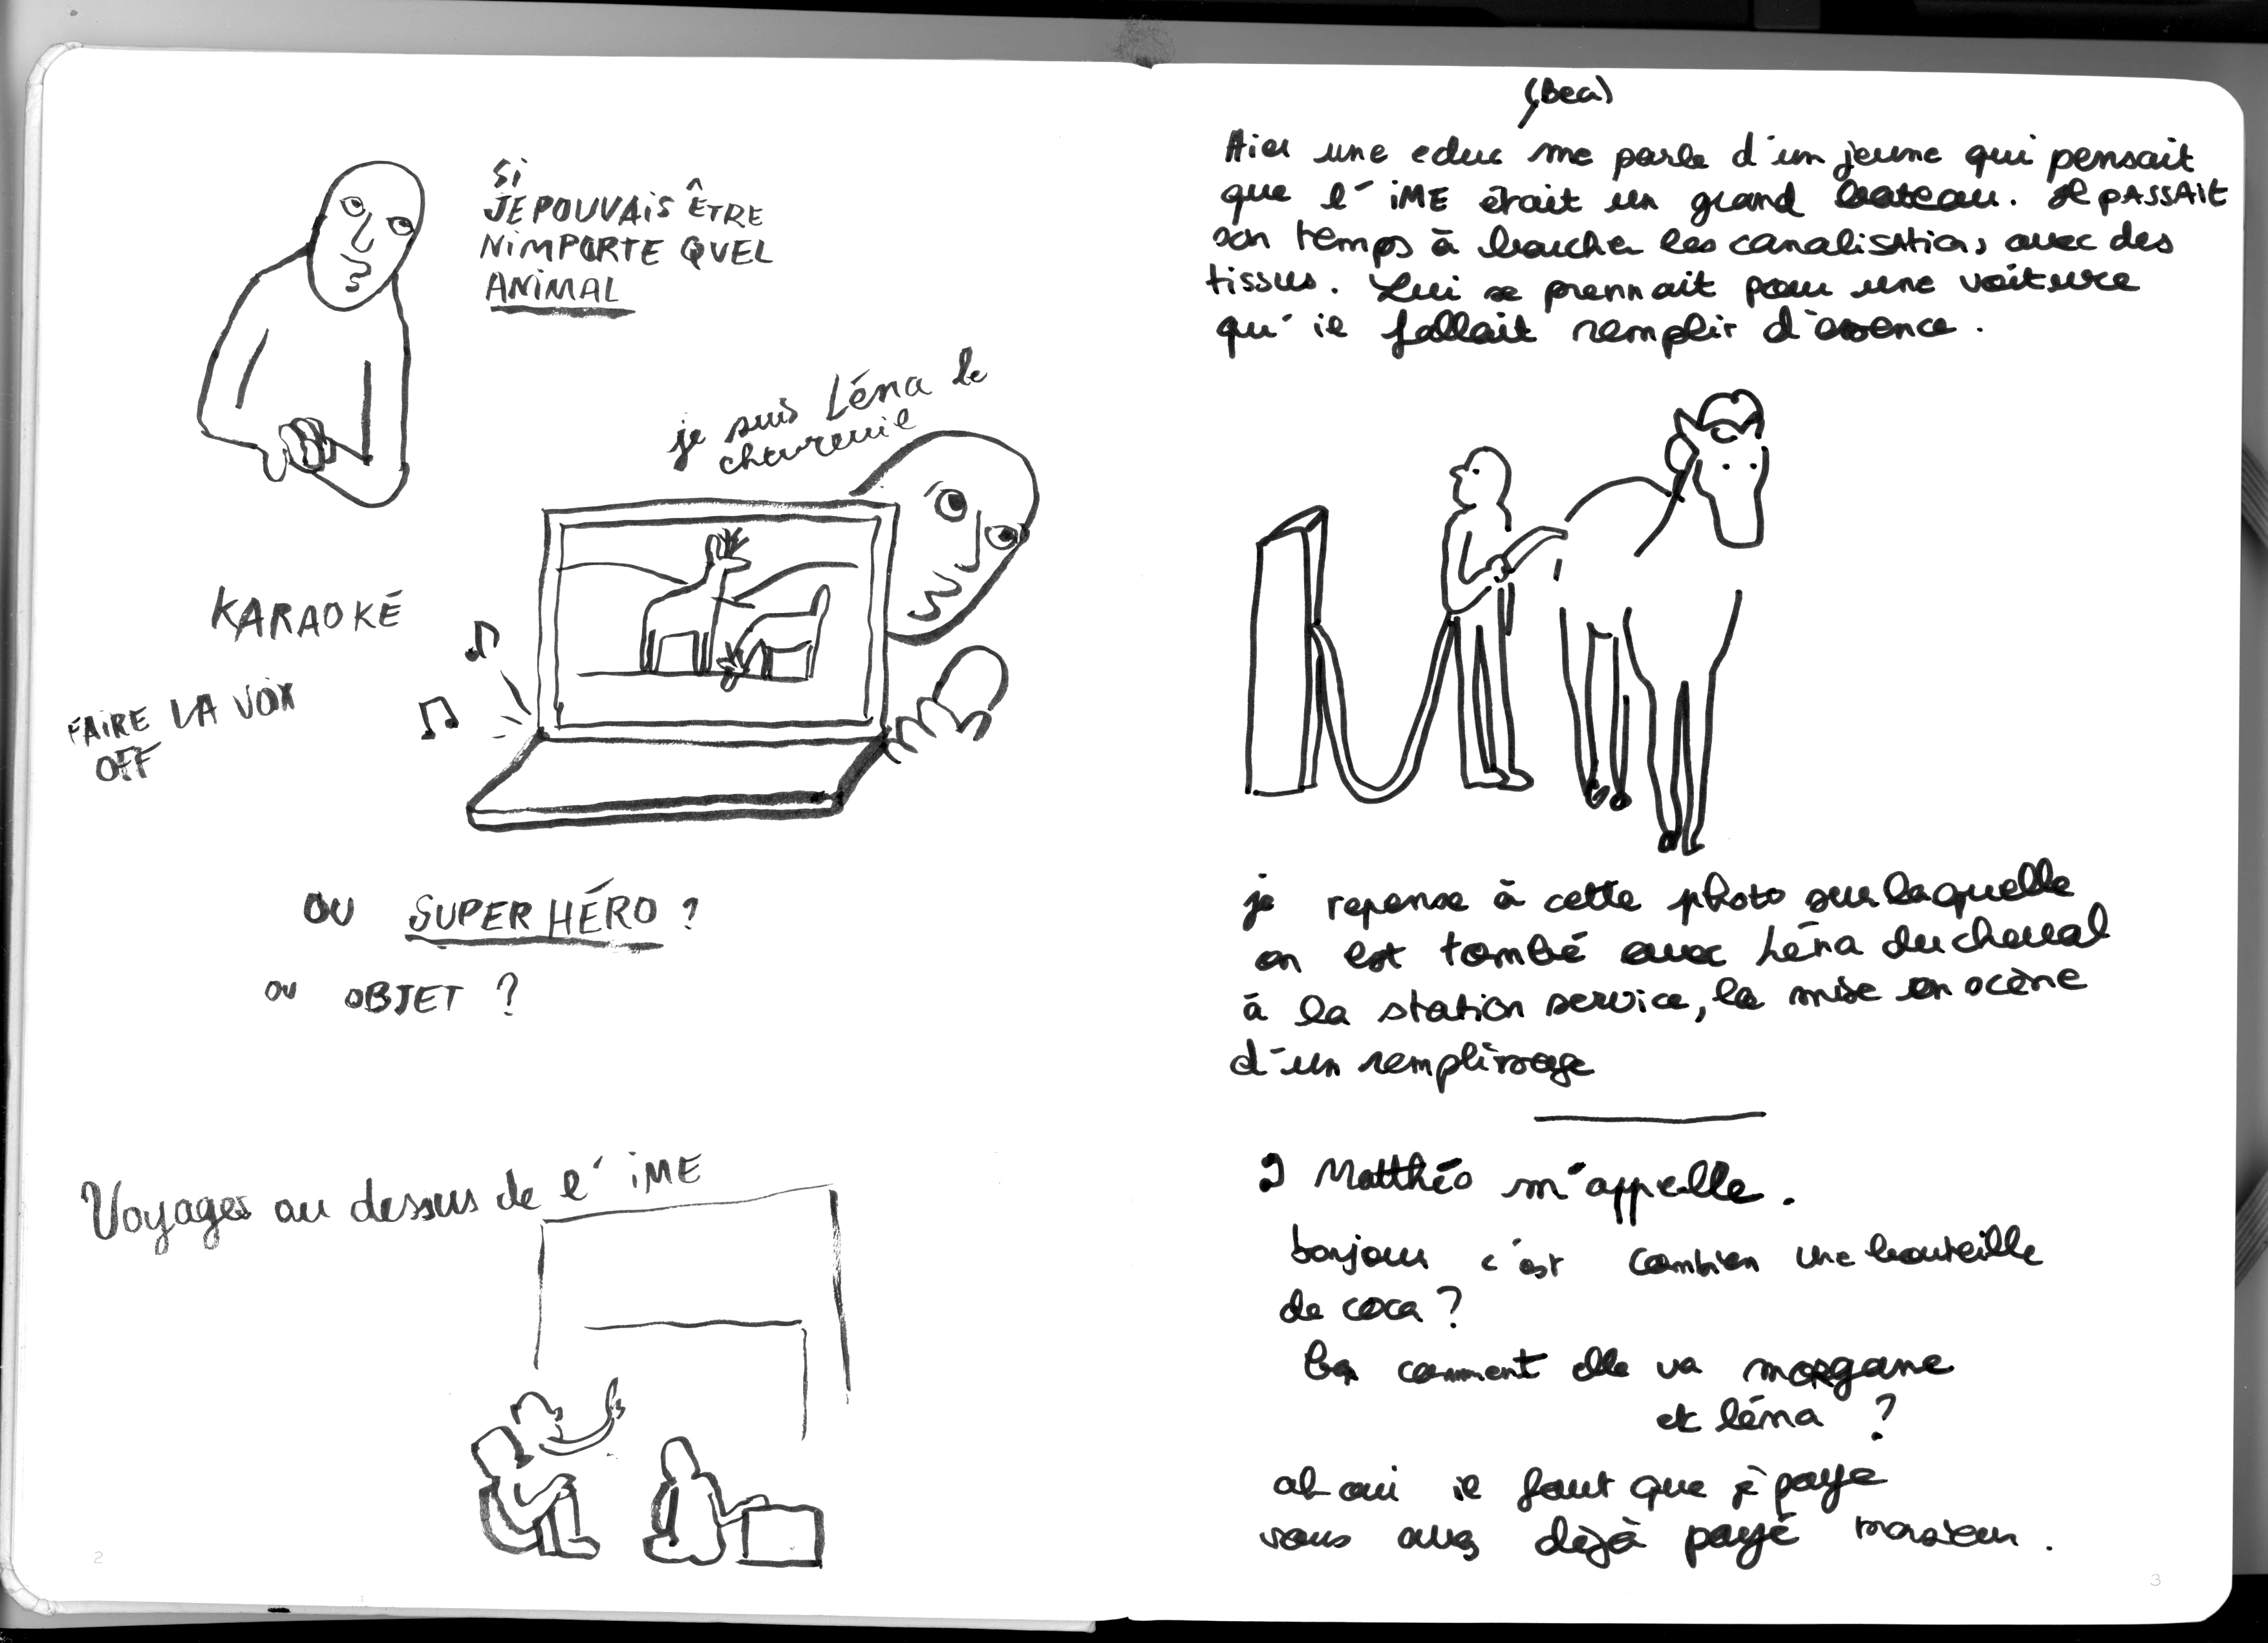 SI
JE POUVAIS ÊTRE
NIMPORTE QUEL
ANIMAL
je suis Léna le
chevreuil
KARAOKÉ
FAIRE LA VOIX
OFF
OU SUPER HÉRO ?
OU OBJET ?
Voyages au dessus de l'iME
2
(Bea)
Hier une educ me parle d'un jeune qui pensait
que l'iME était un grand bateau. Il PASSAIT
son temps à boucher les canalisations avec des
tissus. Lui se prennait pour une voiture
qu'il fallait remplir d'essence.
je repense à cette photo sur laquelle
on est tombé avec Léna du cheval
à la station service, la mise en scène
d'un remplissage
Matthéo m'appelle.
bonjour c'est combien une bouteille
de coca ?
comment elle va morgane
et léna ?
ah oui il faut que je paye
vous avez déjà payé monsieur.
3